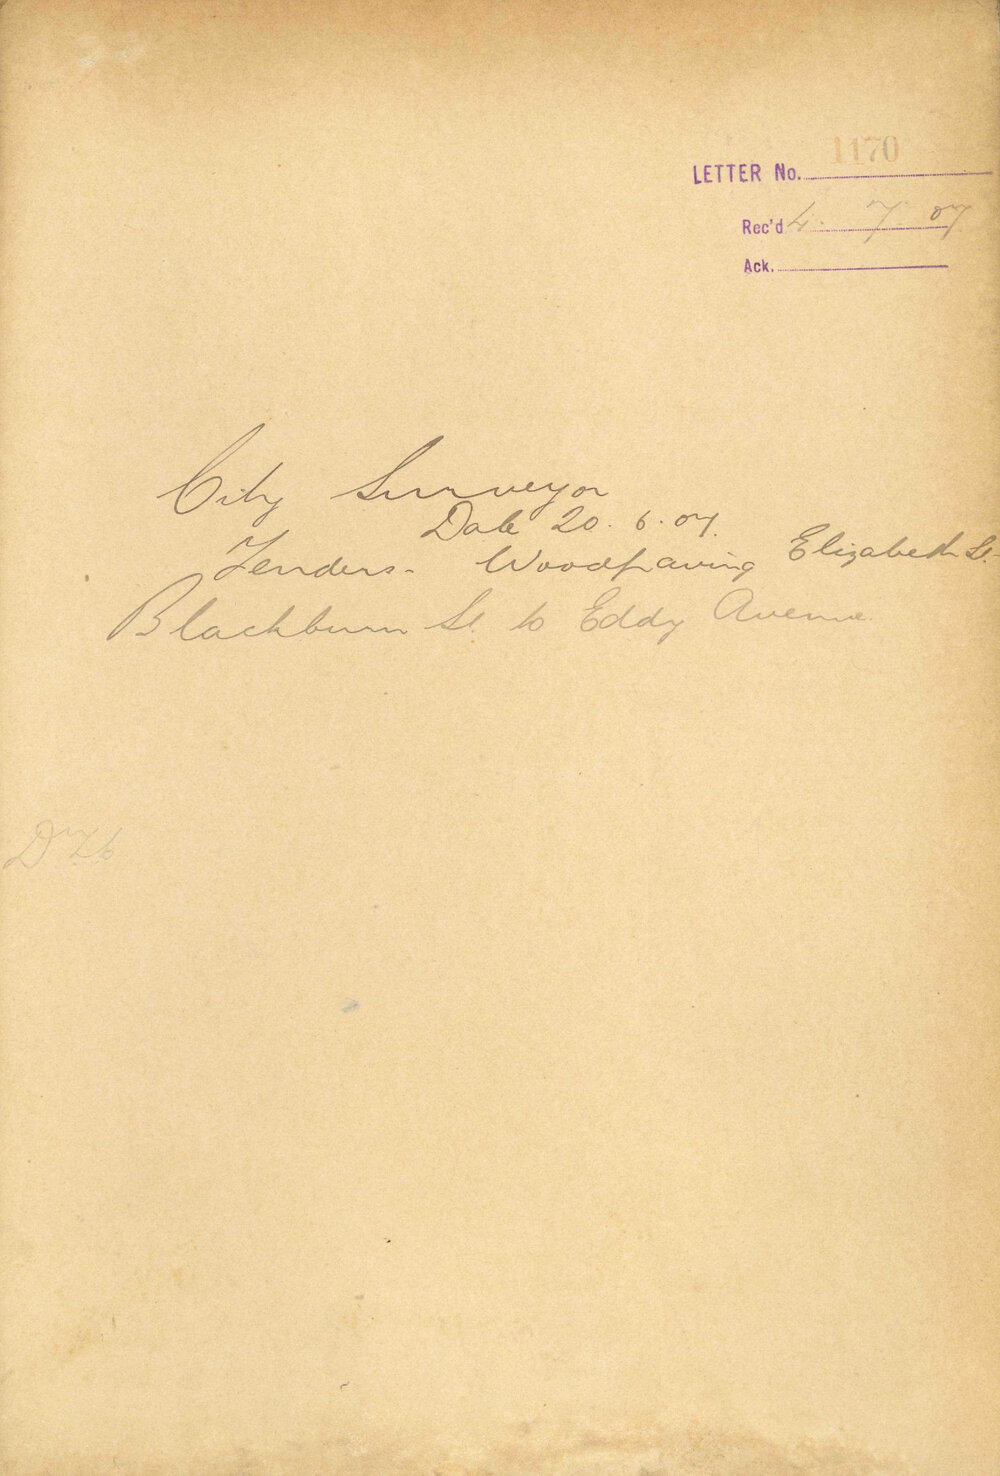 LETTER No. 1170
Rec'd 4. 7. 07
Ack.
City Surveyor
Date 20. 6. 07.
Tenders. Woodpaving Elizabeth St.
Blackburn St. to Eddy Avenue